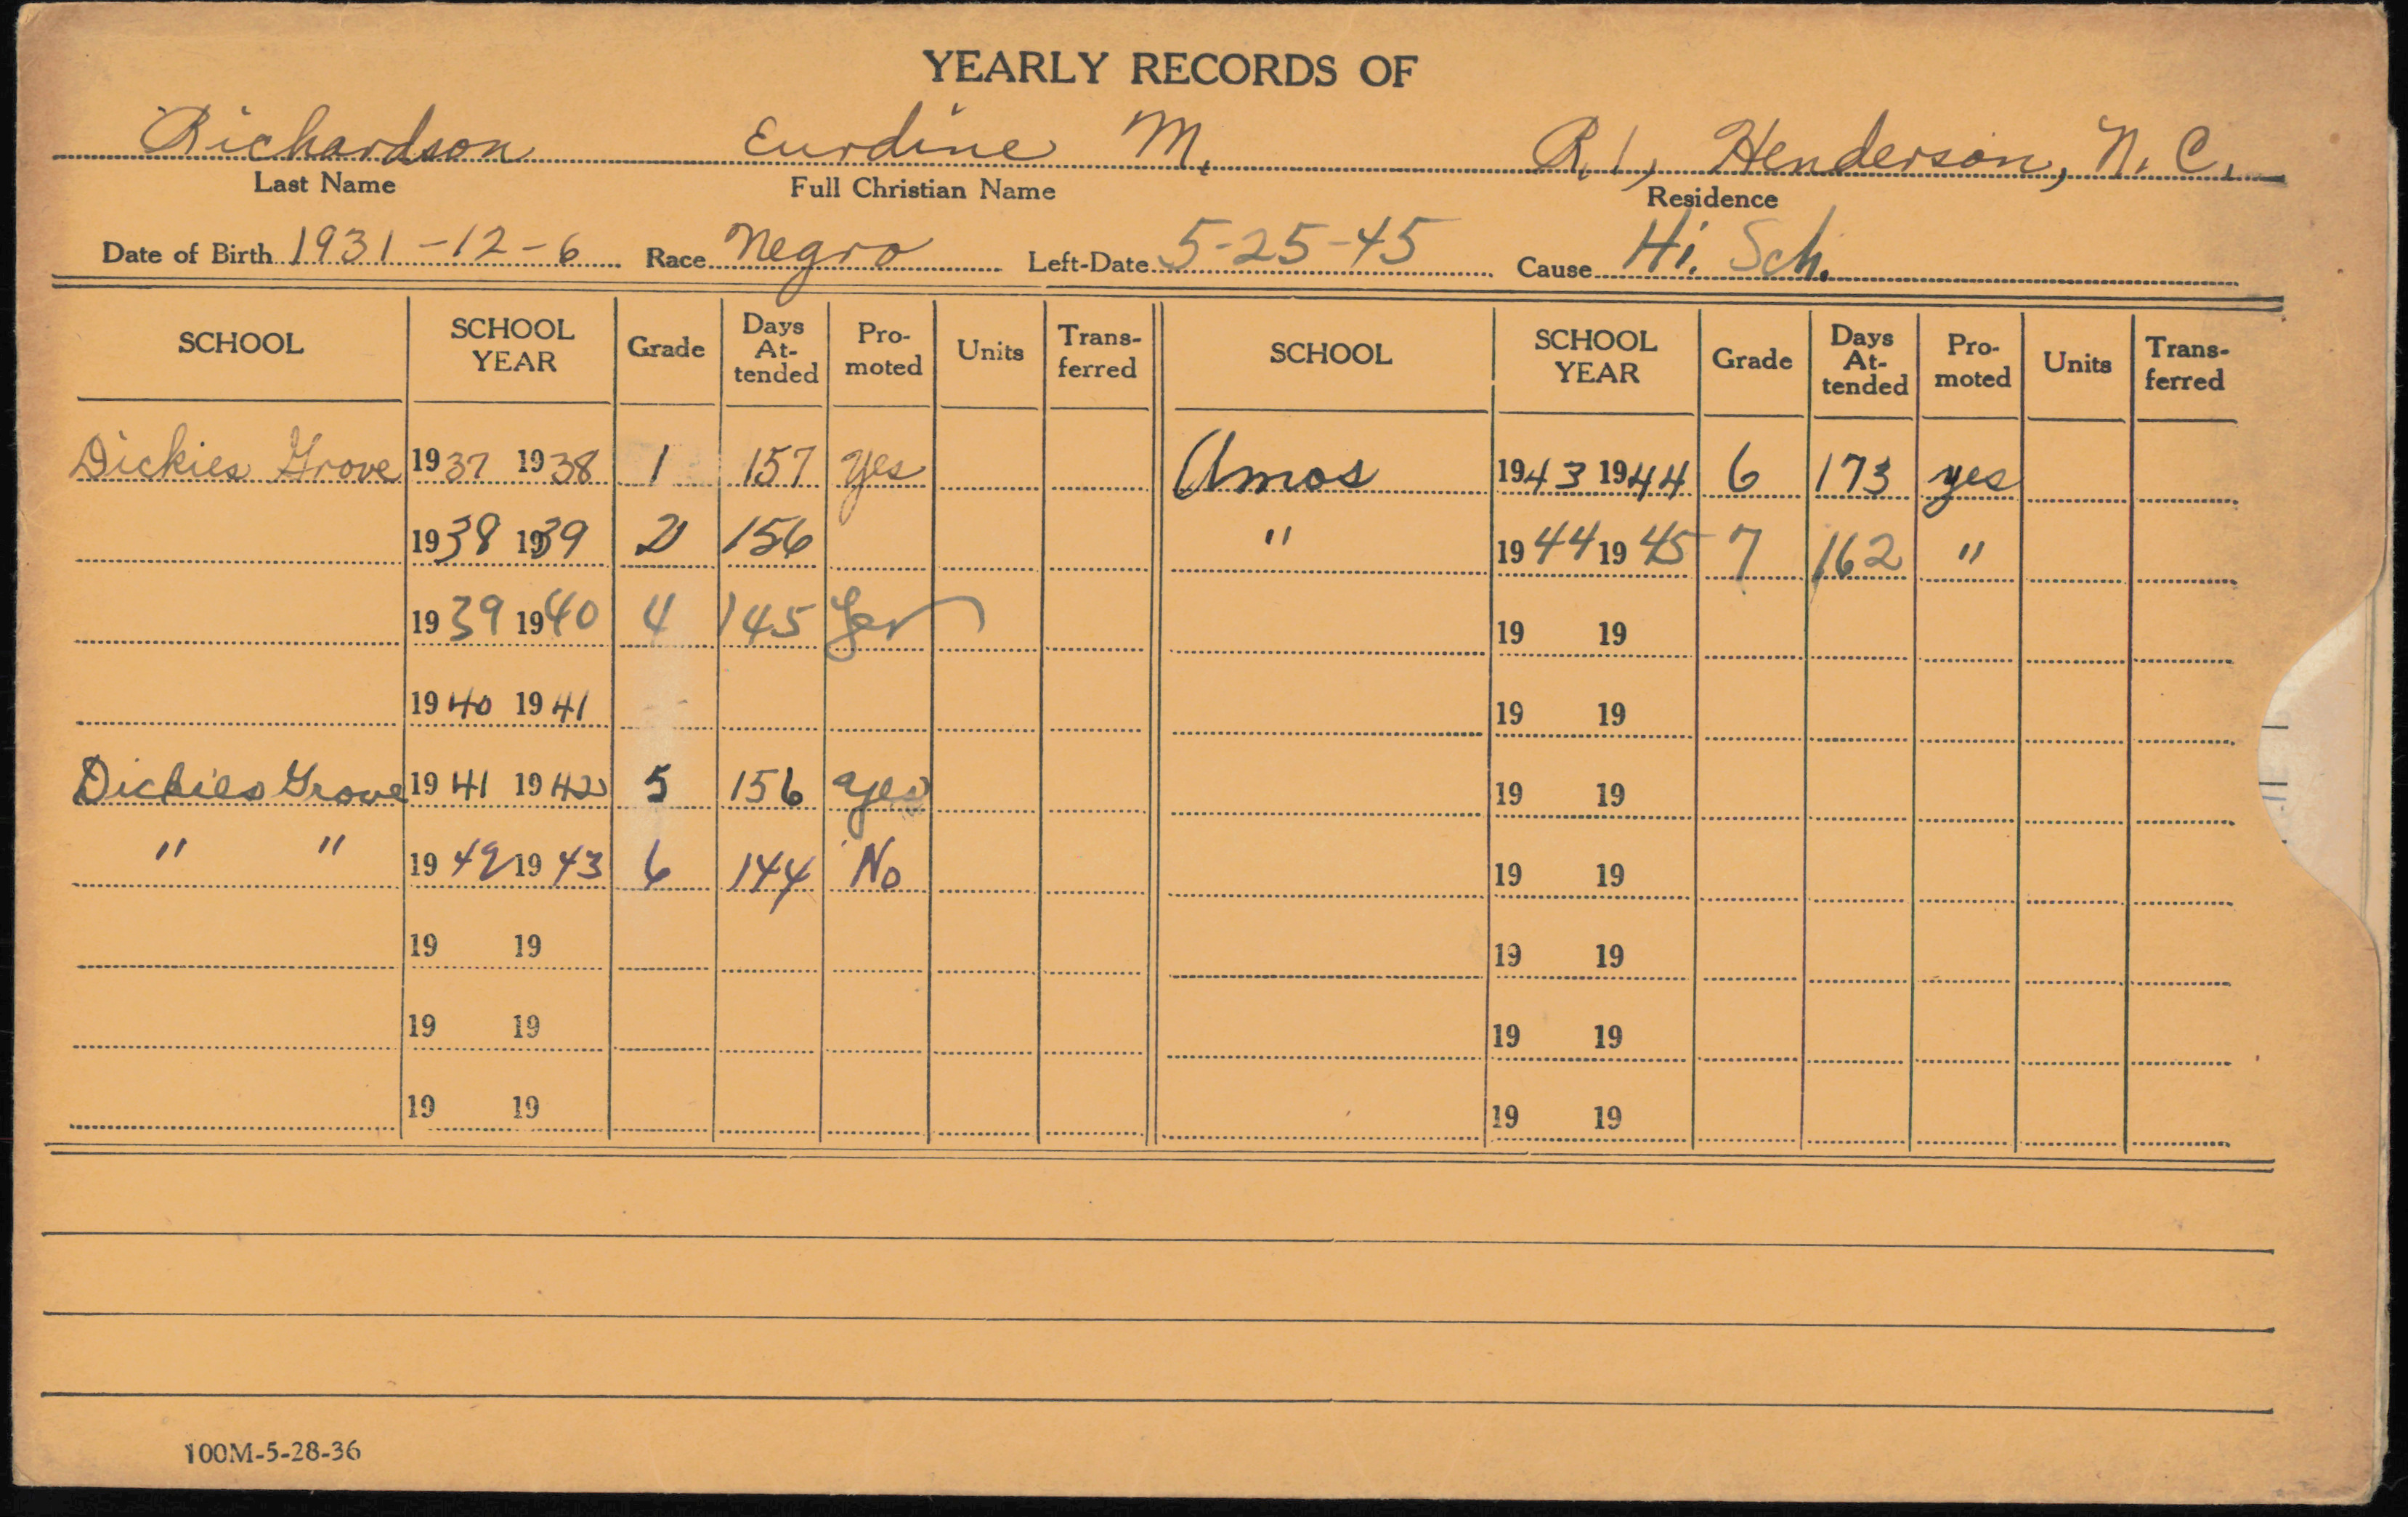 YEARLY RECORDS OF
Richardson Eurdine M. R. 1, Henderson, N. C.
Last Name Full Christian Name Residence
Date of Birth 1931-12-6 Race Negro Left-Date 5-25-45 Cause Hi. Sch.
SCHOOL SCHOOL YEAR Grade Days At-tended Pro-moted Units Trans-ferred SCHOOL SCHOOL YEAR Grade Days At-tended Pro-moted Units Trans-ferred
Dickies Grove 1937 1938 1 157 yes Amos 1943 1944 6 173 yes
1938 1939 2 156 " 1944 1945 7 162 "
1939 1940 4 145 Yes 19 19
1940 1941 19 19
Dickies Grove 1941 1942 5 156 yes 19 19
" " 1942 1943 6 144 No 19 19
19 19 19 19
19 19 19 19
19 19 19 19
100M-5-28-36